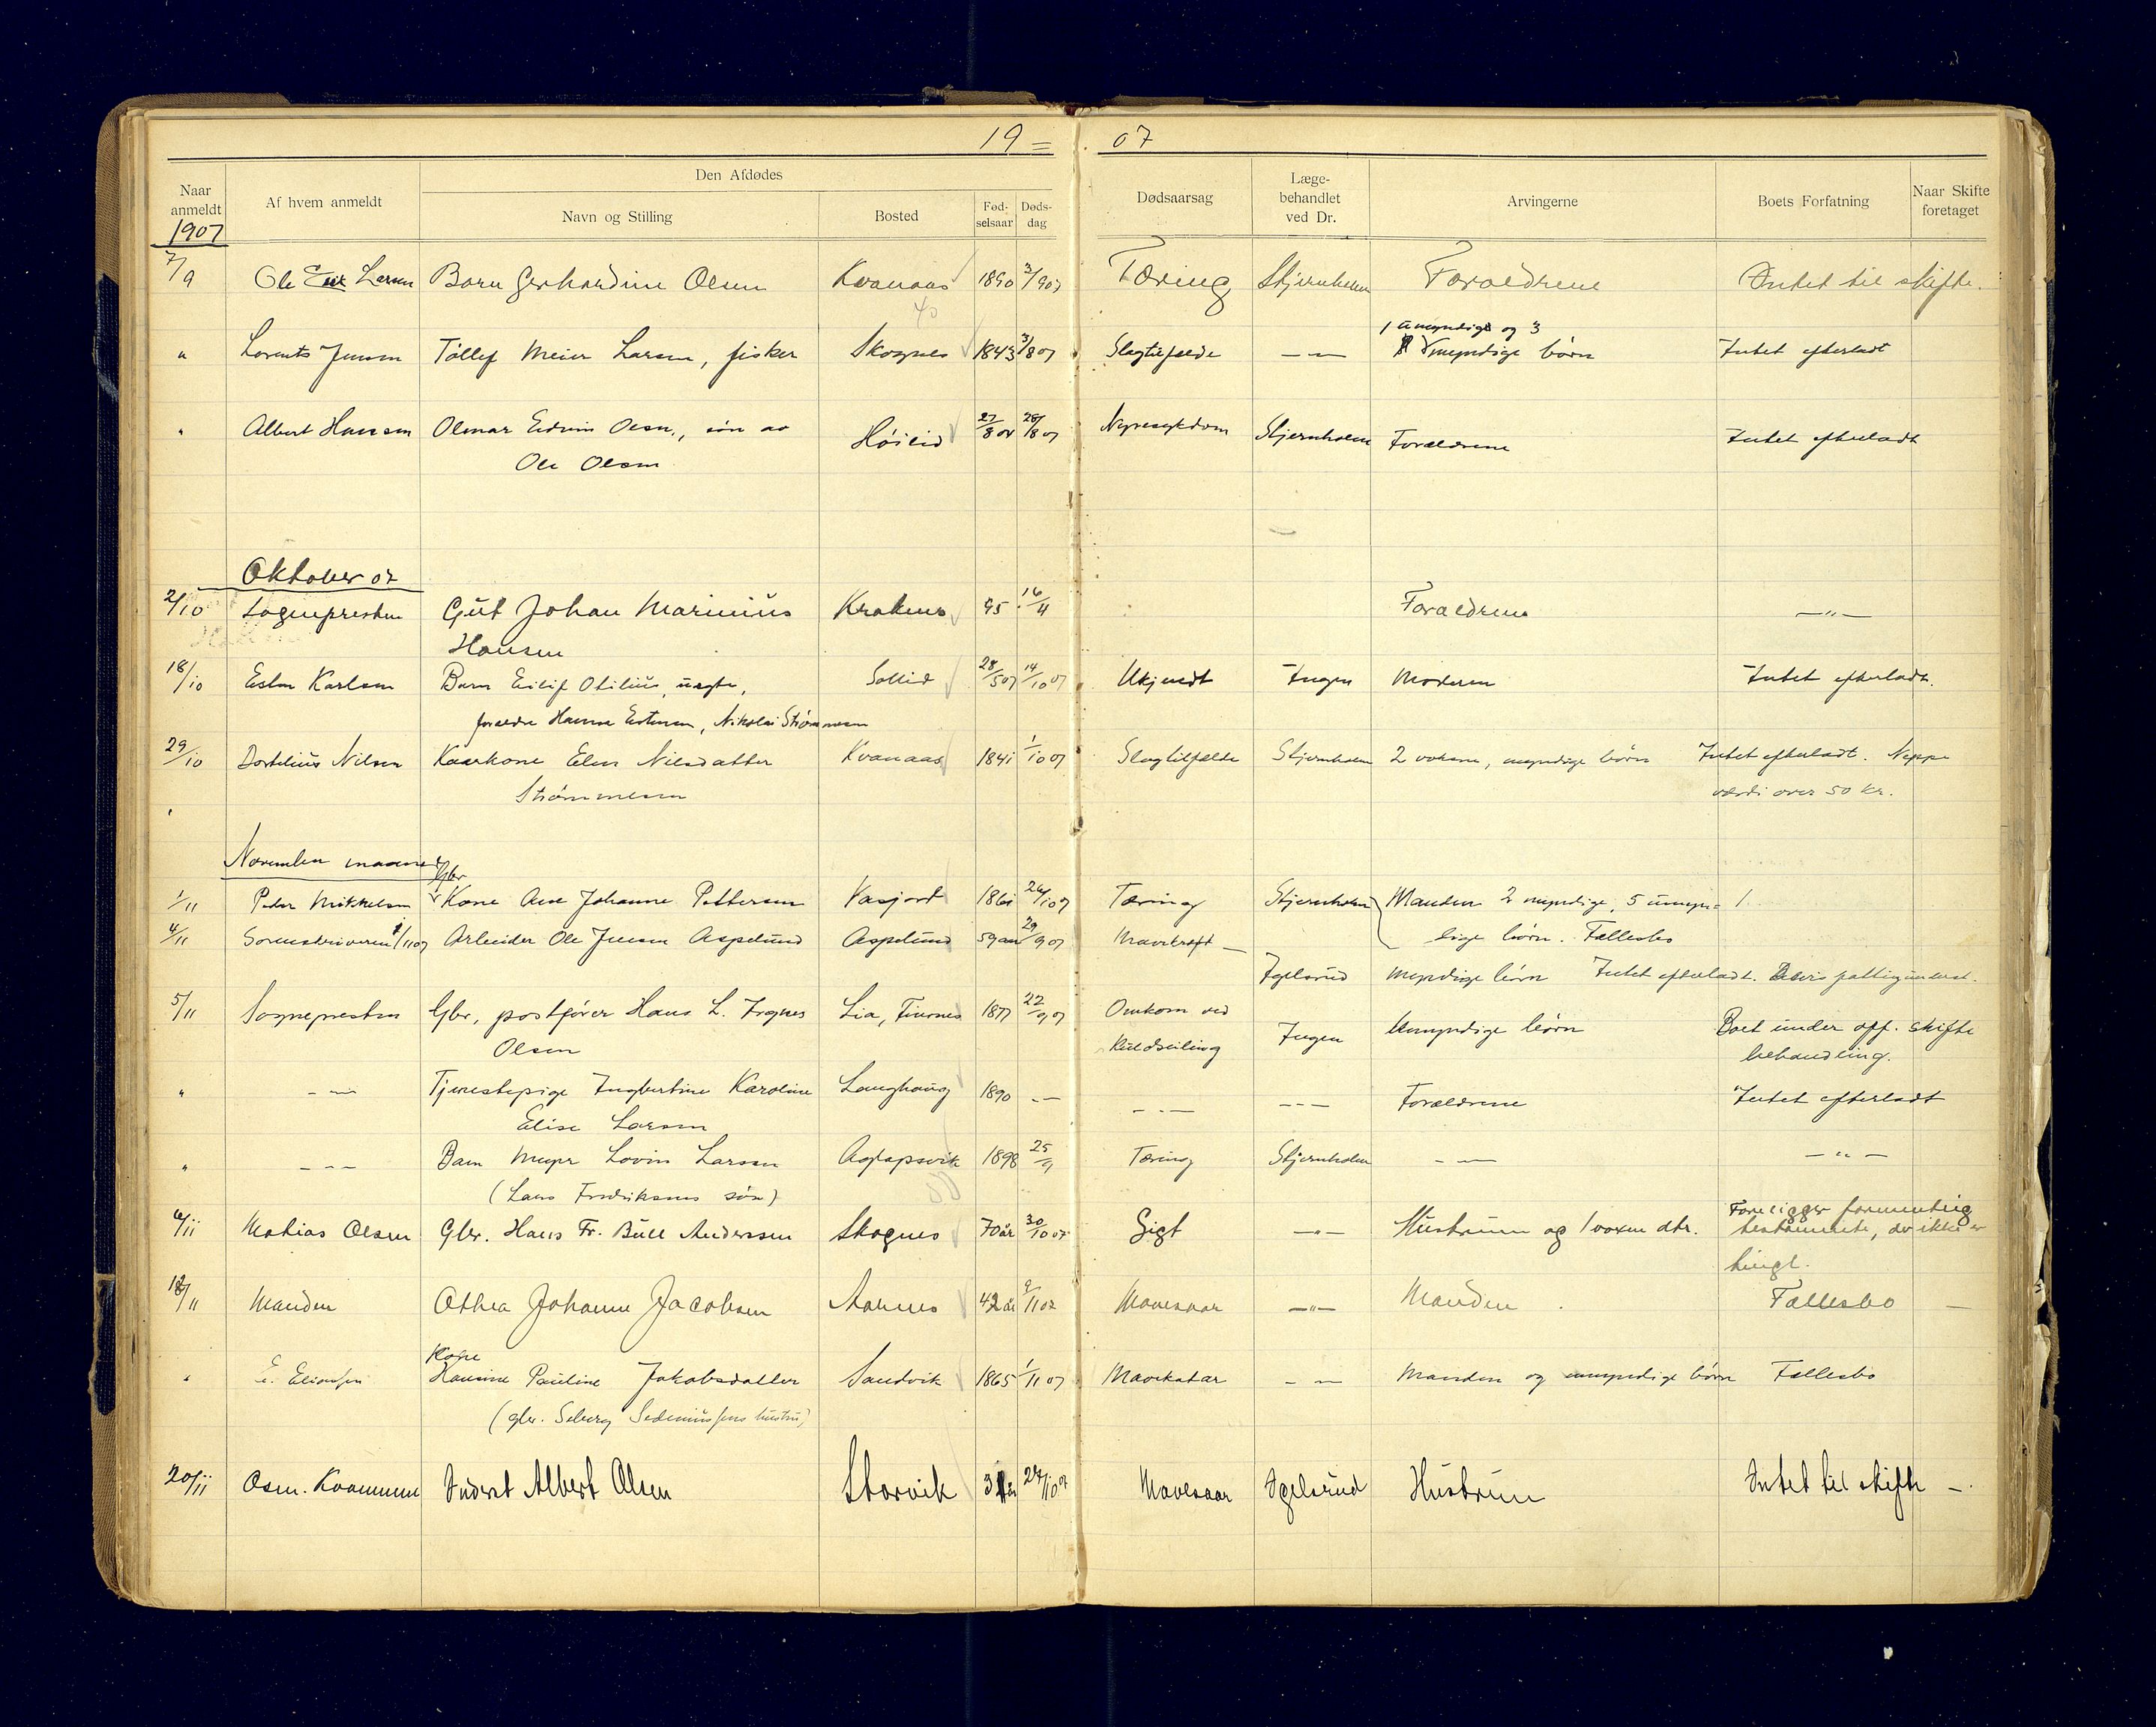 19 = 07
Naar anmeldt
Af hvem anmeldt
Den Afdødes
Navn og Stilling
Bosted
Fød-selsaar
Døds-dag
Dødsaarsag
Læge-behandlet ved Dr.
Arvingerne
Boets Forfatning
Naar Skifte foretaget
1907
7/9 Ole Larsen Barn Gerhardine Olsen Kvanaas 1890 3/907 Tæring Stjernholm Forældrene Intet til skifte.
40
1 umyndig og 3
" Lorents Jensen Tollef Meier Larsen, fisker Skognes 1843 3/807 Slagtilfælde — " — myndige börn Intet efterladt
" Albert Hansen Olmar Edvin Olsen, sön av Höilid 27/8 04 28/8 07 Nyresykdom Stjernholm Forældrene Intet efterladt
Ole Olsen
Oktober 07
2/10 Sognepresten Gut Johan Marinius Kraknes 95 16/4 Forældrene — " —
Hansen
18/10 Karlsen Barn Eilif Otilius, uægte, Sollid 28/5 07 14/10 07 Ukjendt Ingen Moderen Intet efterladt.
forældre Hanna , Nikolai Strömmesen
29/10 Dortelius Nilsen Kaarkone Elen Nilsdatter Kvanaas 1841 1/10 07 Slagtilfælde Stjernholm 2 voksne, myndige börn Intet efterladt. Neppe
Strömmesen værdi over 50 kr.
November maaned
Gbr
1/11 Peder Mikkelsen Kone Ane Johanne Pettersen Vasjord 1861 26/10 7 Tæring Stjernholm Manden 2 myndige, 5 umyn=
4/11 Sorenskriveren 1/11 07 Arbeider Ole Jensen Aspelund Aspelund 59 aar 29/9 07 Mavekræft — dige börn. Fællesbo
Igelsrud Myndige börn Intet efterladt. Bevis
5/11 Sognepresten Gbr, postförer Hans L. Olsen Lia, Finnes 1877 22/9 07 Omkom ved Ingen Umyndige börn Boet under off. skifte
Olsen Kuldseiling behandling.
" — " — Tjenestepige Ingbertine Karoline Langhaug 1890 — " — — " — — " — Forældrene Intet efterladt
Elise Larsen
" — " — Barn Meyer Lovin Larsen Aglapsvik 1898 25/9 Tæring Stjernholm — " — — " —
(Lars Fredriksens sön)
6/11 Mathias Olsen Gbr. Hans Fr. Bull Anderssen Skognes 70 år 30/10 07 Gigt — " — Hustruen og 1 voxen dtr. Foreligger formentlig
testamente, der ikke er
tingl.
12/11 Manden Othea Johanne Jacobsen Aarnes 42 år 9/11 07 Mavesaar — " — Manden Fællesbo —
Kone
" E. Eliassen Hansine Pauline Jakobsdatter Sandvik 1865 1/11 07 Mavekatar — " — Manden og umyndige börn Fællesbo
(gbr. Seberg Sedeniussens hustru)
20/11 Osm. Kvammen Inderst Albert Olsen Storvik 31 år 24/10 07 Mavesaar Igelsrud Hustruen Intet til skifte —